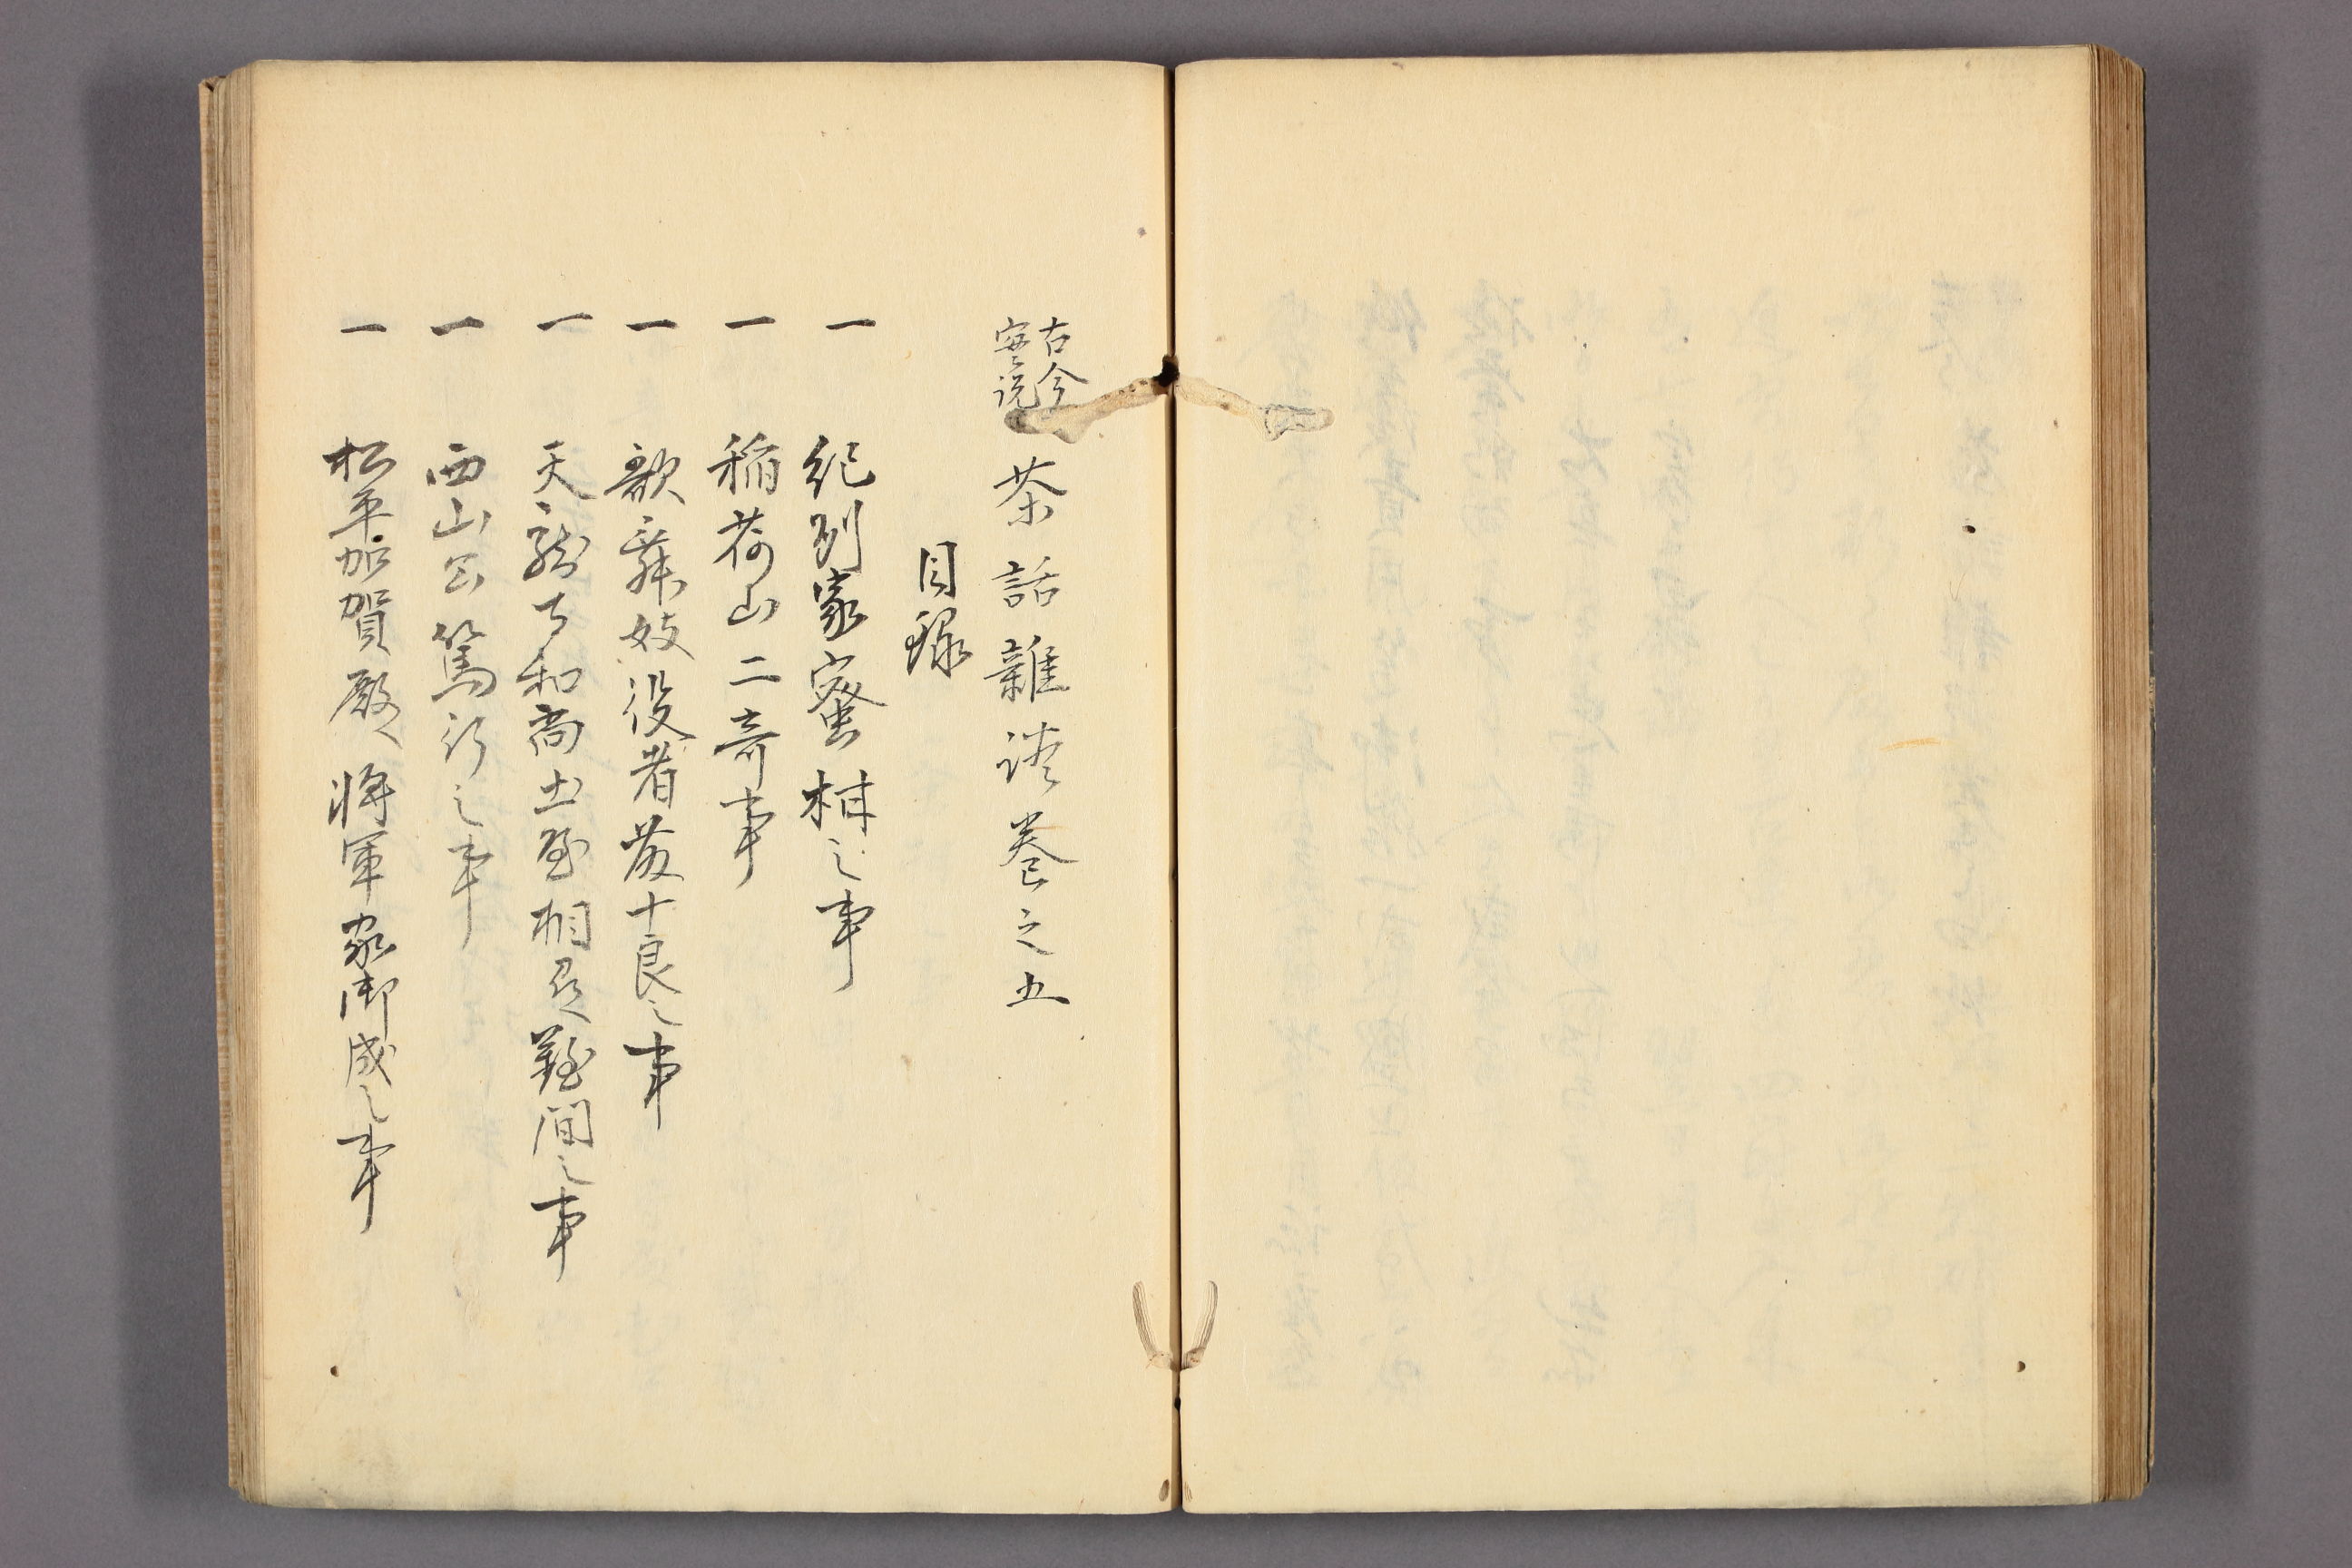 古今
実説 茶話雜談巻之五
目録
一 紀州家蜜柑之事
一 稲荷山二奇事
一 歌舞妓役者藤十良之事
一 天龍寺和尚土屋相難問之事
一 西山公篤行之事
一 松平加賀殿 将軍家御成之事